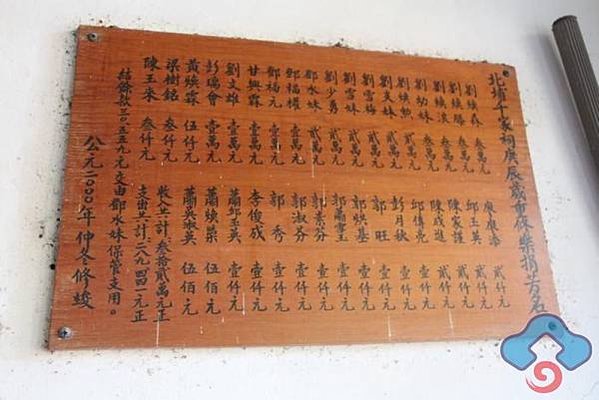 北埔千家祠庚辰歲重修樂捐芳名
劉煥森 叁萬元
劉煥勝 叁萬元
劉煥滨 叁萬元
劉幼妹 叁萬元
劉煥 貳萬元
劉友妹 貳萬元
劉雪梅 貳萬元
劉雪妹 貳萬元
劉少勇 貳萬元
鄧水妹 貳萬元
鄧福權 壹萬元
鄧福元 壹萬元
甘興霖 壹萬元
劉文雄 壹萬元
彭瑞會 壹萬元
黃煥霖 伍仟元
梁樹銘 叁仟元
陳玉来 叁仟元
廖康添 貳仟元
邱玉英 貳仟元
陳家謹 貳仟元
陳成進 貳仟元
邱傳亮 壹仟元
彭月秋 壹仟元
郭旺 壹仟元
郭烘基 壹仟元
郭蕭雪玉 壹仟元
郭素芬 壹仟元
郭淑芬 壹仟元
郭秀 壹仟元
李俊成 壹仟元
蕭邱玉英 壹仟元
蕭煥榮 伍佰元
蕭吳淑英 伍佰元
收入共計:叁拾貳萬元正
支出共計:二八九四四一元正
結餘款三0五五九元交由鄧水妹保管支用。
公元二000年仲冬修竣